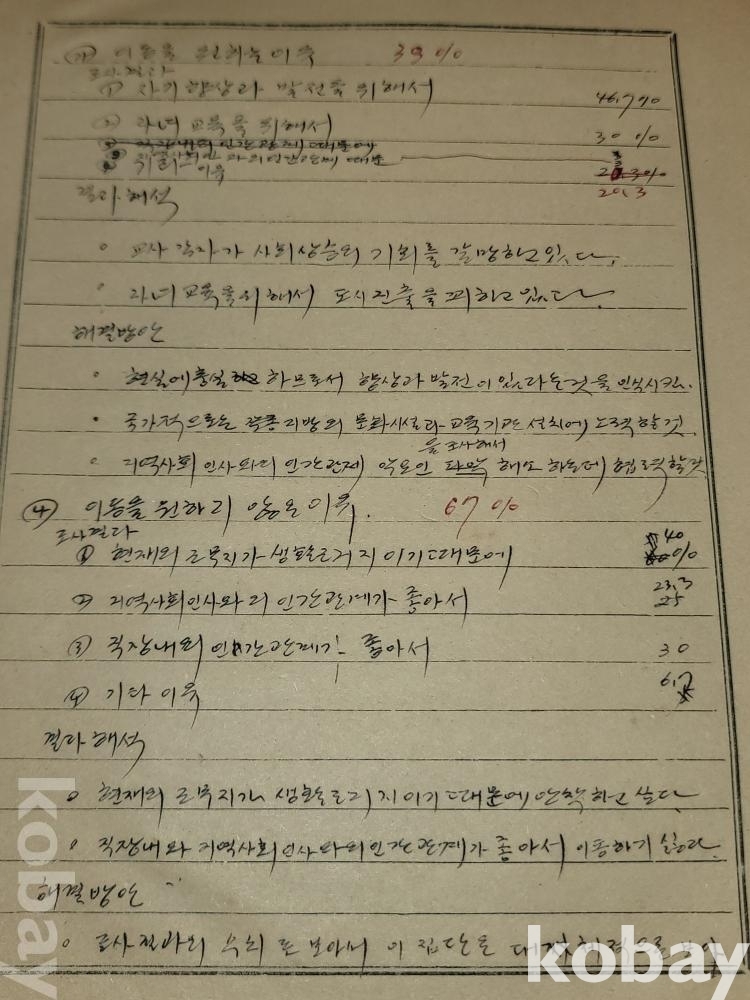 이동을 원하는 이유 39%
조사결과
① 자기 향상과 발전을 위해서 46.7%
② 자녀 교육을 위해서 30%
지역사회인과의 인간관계 때문
기타 이유 20.3
결과해석
• 교사 각자가 사회상승의 기회를 갈망하고 있다.
• 자녀교육을 위해서 도시진출을 꾀하고 있다.
해결방안
• 현실에 충실 하므로서 향상과 발전이 있다는 것을 인식시킴.
• 국가적으로는 각종 지방의 문화시설과 교육기관 설치에 노력할것
을 조사해서
• 지역사회 인사와의 인간관계 악요인 해소 하는데 협력할것
④ 이동을 원하지 않은 이유. 67%
조사결과
① 현재의 근무지가 생활근거지이기 때문에 40%
② 지역사회인사와의 인간관계가 좋아서 23.3 25
③ 직장내의 인간관계가 좋아서 30
④ 기타 이유 6.7
결과해석
• 현재의 근무지가 생활근거지이기 때문에 안착하고 싶다.
• 직장내와 지역사회인사와의 인간관계가 좋아서 이동하기 싫다.
해결방안
• 조사결과의 이 집단은
kobay
kobay